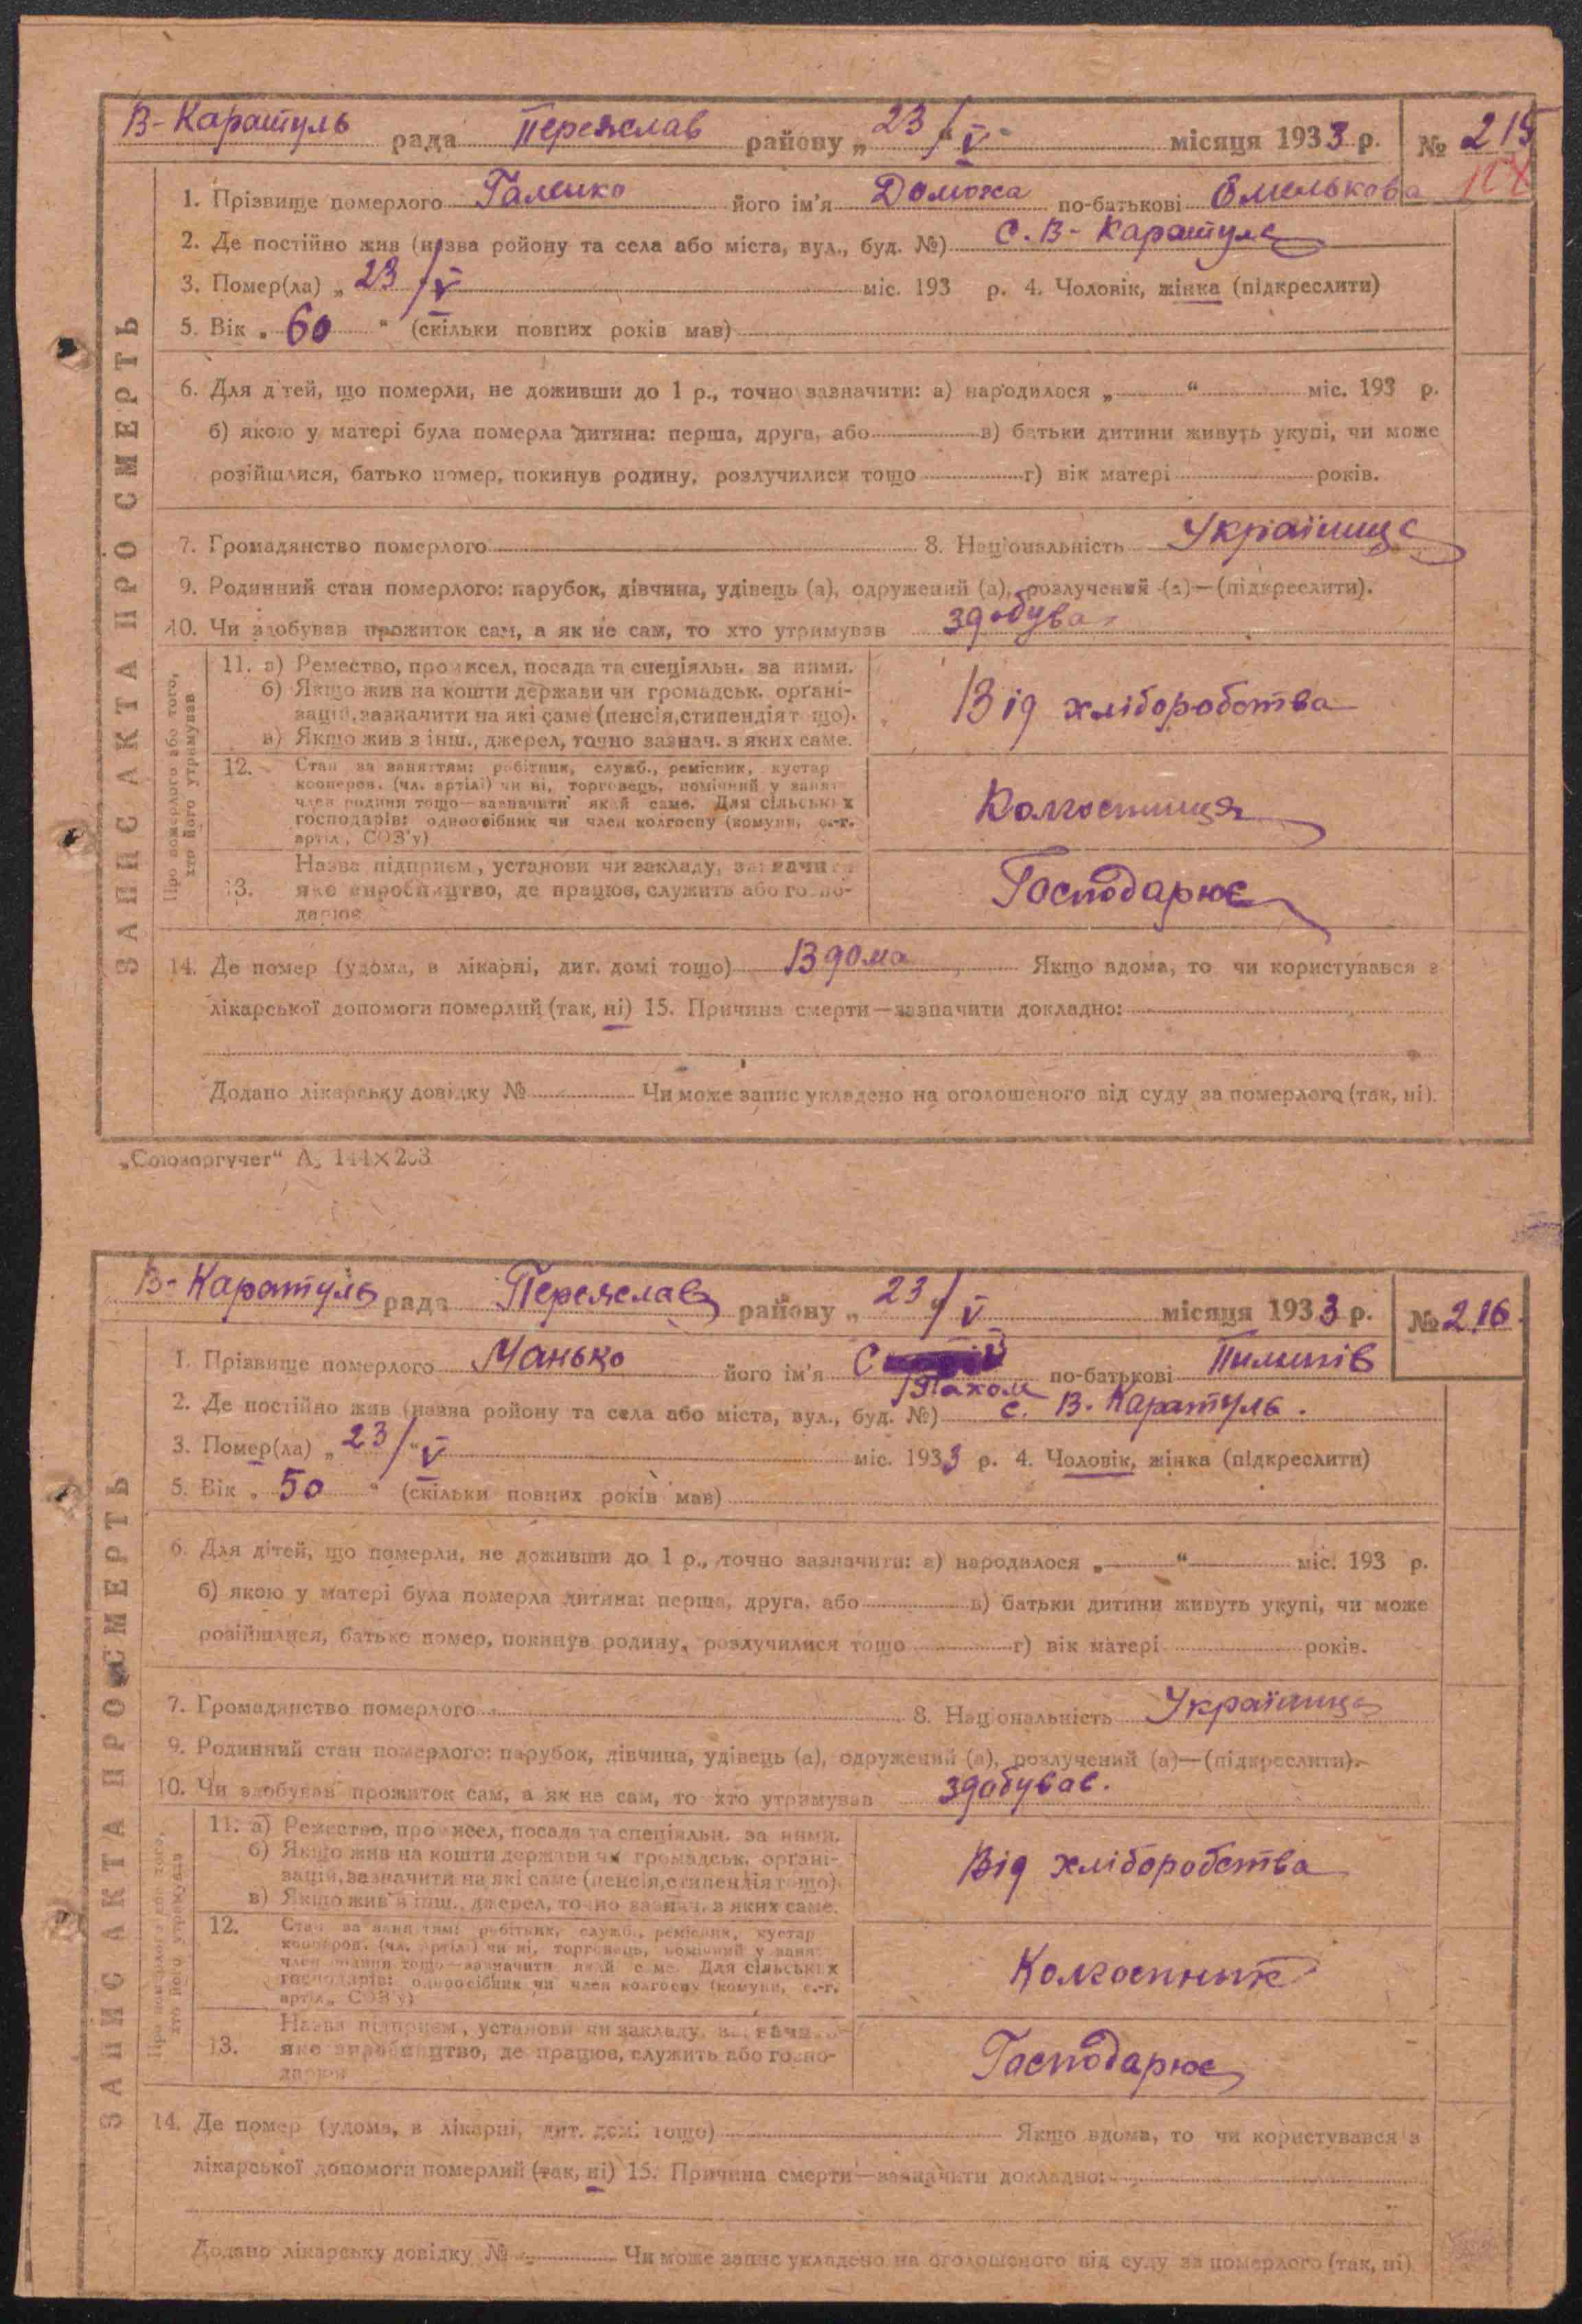 В-Каратуль рада Переяслав району „ 23/V місяця 1933 р. № 215
1. Прізвище померлого Галенко його ім'я Доможа по-батькові Омелькова
2. Де постійно жив (назва ройону та села або міста, вул., буд. №) С. В-Каратуль
3. Помер(ла) „ 23/V міс. 193 р. 4. Чоловік, жінка (підкреслити)
5. Вік „ 60 “ (скільки повних років мав)
6. Для дітей, що померли, не доживши до 1 р., точно зазначити: а) народилося „ “ міс. 193 р.
б) якою у матері була померла дитина: перша, друга, або в) батьки дитини живуть укупі, чи може
розійшлися, батько помер, покинув родину, розлучилися тощо г) вік матері років.
7. Громадянство померлого 8. Національність Українець
9. Родинний стан померлого: парубок, дівчина, удівець (а), одружений (а), розлучений (а)—(підкреслити).
10. Чи здобував прожиток сам, а як не сам, то хто утримував здобува
Про померлого або того, хто його утримував
11. а) Ремество, промисел, посада та спеціяльн. за ними.
б) Якщо жив на кошти держави чи громадськ. орґані-
зацій, зазначити на які саме (пенсія, стипендія тощо).
в) Якщо жив з інш., джерел, точно зазнач. з яких саме.
Від хліборобства
12. Стан за заняттям: робітник, служб., ремісник, кустар
кооперов. (чл. артілі) чи ні, торговець, помічний у занят.
член родини тощо—зазначити який саме. Для сільських
господарів: одноосібник чи член колгоспу (комуни, с.-г.
артіл., СОЗ'у)
Колгоспниця
13. Назва підприєм., установи чи закладу, зазначити
яке виробництво, де працює, служить або госпо-
дарює
Господарює
14. Де помер (удома, в лікарні, дит. домі тощо) Вдома Якщо вдома, то чи користувався з
лікарської допомоги померлий (так, ні) 15. Причина смерти—зазначити докладно:
Додано лікарську довідку № Чи може запис укладено на оголошеного від суду за померлого (так, ні).
ЗАПИС АКТА ПРО СМЕРТЬ
„Союзоргучет“ А₅ 144×203
В-Каратуль рада Переяслав району „ 23/V місяця 1933 р. № 216
1. Прізвище померлого Манько його ім'я Пахом по-батькові Пилипів
2. Де постійно жив (назва ройону та села або міста, вул., буд. №) с. В. Каратуль.
3. Помер(ла) „ 23/V міс. 1933 р. 4. Чоловік, жінка (підкреслити)
5. Вік „ 50 “ (скільки повних років мав)
6. Для дітей, що померли, не доживши до 1 р., точно зазначити: а) народилося „ “ міс. 193 р.
б) якою у матері була померла дитина: перша, друга, або в) батьки дитини живуть укупі, чи може
розійшлися, батько помер, покинув родину, розлучилися тощо г) вік матері років.
7. Громадянство померлого 8. Національність Українець
9. Родинний стан померлого: парубок, дівчина, удівець (а), одружений (а), розлучений (а)—(підкреслити).
10. Чи здобував прожиток сам, а як не сам, то хто утримував здобував.
Про померлого або того, хто його утримував
11. а) Ремество, промисел, посада та спеціяльн. за ними.
б) Якщо жив на кошти держави чи громадськ. орґані-
зацій, зазначити на які саме (пенсія, стипендія тощо).
в) Якщо жив з інш., джерел, точно зазнач. з яких саме.
Від хліборобства
12. Стан за заняттям: робітник, служб., ремісник, кустар
кооперов. (чл. артілі) чи ні, торговець, помічний у занят.
член родини тощо—зазначити який саме. Для сільських
господарів: одноосібник чи член колгоспу (комуни, с.-г.
артіл., СОЗ'у)
Колгоспник
13. Назва підприєм., установи чи закладу, зазначити
яке виробництво, де працює, служить або госпо-
дарює
Господарює
14. Де помер (удома, в лікарні, дит. домі тощо) Якщо вдома, то чи користувався з
лікарської допомоги померлий (так, ні) 15. Причина смерти—зазначити докладно:
Додано лікарську довідку № Чи може запис укладено на оголошеного від суду за померлого (так, ні)
ЗАПИС АКТА ПРО СМЕРТЬ